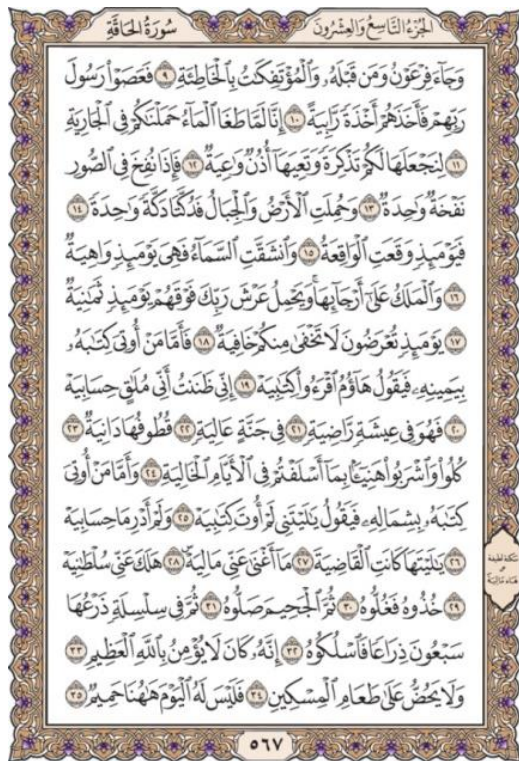 الجُزْءُ التَّاسِعُ وَالعِشْرُونَ
سُورَةُ الحَاقَّةِ
وَجَآءَ فِرْعَوْنُ وَمَن قَبْلَهُۥ وَٱلْمُؤْتَفِكَٰتُ بِٱلْخَاطِئَةِ ٩ فَعَصَوْا۟ رَسُولَ
رَبِّهِمْ فَأَخَذَهُمْ أَخْذَةً رَّابِيَةً ١٠ إِنَّا لَمَّا طَغَا ٱلْمَآءُ حَمَلْنَٰكُمْ فِى ٱلْجَارِيَةِ
١١ لِنَجْعَلَهَا لَكُمْ تَذْكِرَةً وَتَعِيَهَآ أُذُنٌ وَٰعِيَةٌ ١٢ فَإِذَا نُفِخَ فِى ٱلصُّورِ
نَفْخَةٌ وَٰحِدَةٌ ١٣ وَحُمِلَتِ ٱلْأَرْضُ وَٱلْجِبَالُ فَدُكَّتَا دَكَّةً وَٰحِدَةً ١٤
فَيَوْمَئِذٍ وَقَعَتِ ٱلْوَاقِعَةُ ١٥ وَٱنشَقَّتِ ٱلسَّمَآءُ فَهِىَ يَوْمَئِذٍ وَاهِيَةٌ
١٦ وَٱلْمَلَكُ عَلَىٰٓ أَرْجَآئِهَا ۚ وَيَحْمِلُ عَرْشَ رَبِّكَ فَوْقَهُمْ يَوْمَئِذٍ ثَمَٰنِيَةٌ
١٧ يَوْمَئِذٍ تُعْرَضُونَ لَا تَخْفَىٰ مِنكُمْ خَافِيَةٌ ١٨ فَأَمَّا مَنْ أُوتِىَ كِتَٰبَهُۥ
بِيَمِينِهِۦ فَيَقُولُ هَآؤُمُ ٱقْرَءُوا۟ كِتَٰبِيَهْ ١٩ إِنِّى ظَنَنتُ أَنِّى مُلَٰقٍ حِسَابِيَهْ
٢٠ فَهُوَ فِى عِيشَةٍ رَّاضِيَةٍ ٢١ فِى جَنَّةٍ عَالِيَةٍ ٢٢ قُطُوفُهَا دَانِيَةٌ ٢٣
كُلُوا۟ وَٱشْرَبُوا۟ هَنِيٓـًٔۢا بِمَآ أَسْلَفْتُمْ فِى ٱلْأَيَّامِ ٱلْخَالِيَةِ ٢٤ وَأَمَّا مَنْ أُوتِىَ
كِتَٰبَهُۥ بِشِمَالِهِۦ فَيَقُولُ يَٰلَيْتَنِى لَمْ أُوتَ كِتَٰبِيَهْ ٢٥ وَلَمْ أَدْرِ مَا حِسَابِيَهْ
٢٦ يَٰلَيْتَهَا كَانَتِ ٱلْقَاضِيَةَ ٢٧ مَآ أَغْنَىٰ عَنِّى مَالِيَهْ ۜ ٢٨ هَلَكَ عَنِّى سُلْطَٰنِيَهْ
٢٩ خُذُوهُ فَغُلُّوهُ ٣٠ ثُمَّ ٱلْجَحِيمَ صَلُّوهُ ٣١ ثُمَّ فِى سِلْسِلَةٍ ذَرْعُهَا
سَبْعُونَ ذِرَاعًا فَٱسْلُكُوهُ ٣٢ إِنَّهُۥ كَانَ لَا يُؤْمِنُ بِٱللَّهِ ٱلْعَظِيمِ ٣٣
وَلَا يَحُضُّ عَلَىٰ طَعَامِ ٱلْمِسْكِينِ ٣٤ فَلَيْسَ لَهُ ٱلْيَوْمَ هَٰهُنَا حَمِيمٌ ٣٥
سكتة لطيفة
هاء مَالِيَهْ
٥٦٧